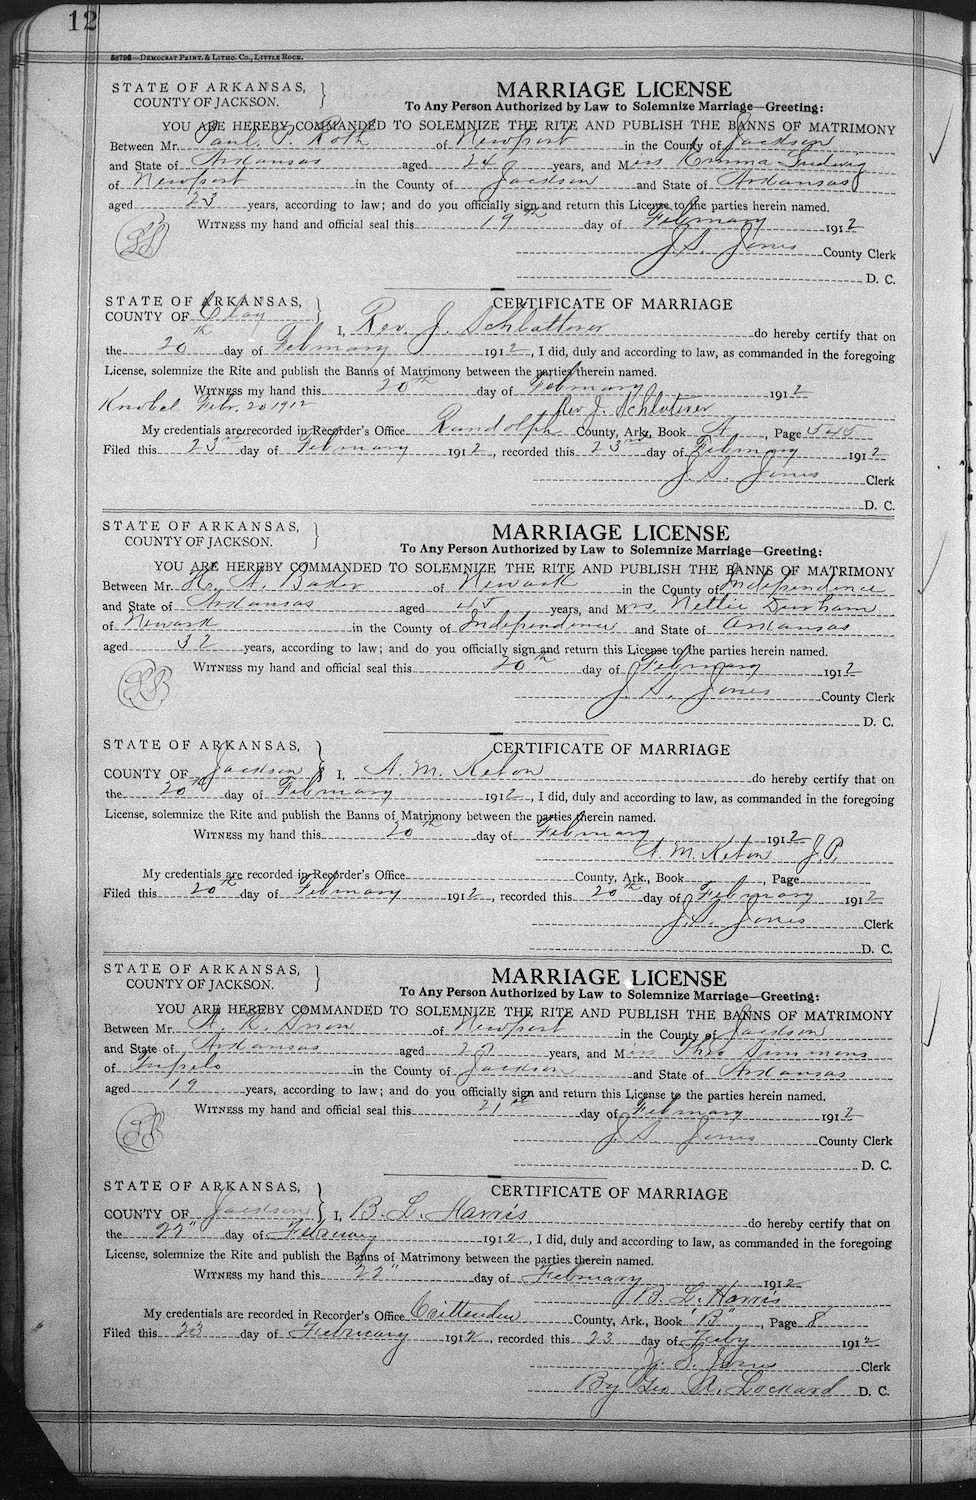 12
58795—DEMOCRAT PRINT. & LITHO. CO., LITTLE ROCK.
STATE OF ARKANSAS, } MARRIAGE LICENSE
COUNTY OF JACKSON. To Any Person Authorized by Law to Solemnize Marriage—Greeting:
YOU ARE HEREBY COMMANDED TO SOLEMNIZE THE RITE AND PUBLISH THE BANNS OF MATRIMONY
Between Mr. Paul. P. Roth of Newport in the County of Jackson
and State of Arkansas aged 24 years, and Miss Emma Ludwig
of Newport in the County of Jackson and State of Arkansas
aged 23 years, according to law; and do you officially sign and return this License to the parties herein named.
WITNESS my hand and official seal this 19th day of February 1912
J. S. Jones County Clerk
D. C.
STATE OF ARKANSAS, } CERTIFICATE OF MARRIAGE
COUNTY OF Clay I, Rev. J. Schlatterer do hereby certify that on
the 20th day of February 1912, I did, duly and according to law, as commanded in the foregoing
License, solemnize the Rite and publish the Banns of Matrimony between the parties herein named.
WITNESS my hand this 20th day of February 1912
Knobel Febr. 20 1912 Rev J. Schlaterer
My credentials are recorded in Recorder's Office Randolph County, Ark., Book A, Page 545
Filed this 23rd day of February 1912, recorded this 23rd day of February 1912
J. S. Jones Clerk
D. C.
STATE OF ARKANSAS, } MARRIAGE LICENSE
COUNTY OF JACKSON. To Any Person Authorized by Law to Solemnize Marriage—Greeting:
YOU ARE HEREBY COMMANDED TO SOLEMNIZE THE RITE AND PUBLISH THE BANNS OF MATRIMONY
Between Mr. H. A. Baker of Newark in the County of Independence
and State of Arkansas aged 45 years, and Mrs. Nettie Durham
of Newark in the County of Independence and State of Arkansas
aged 32 years, according to law; and do you officially sign and return this License to the parties herein named.
WITNESS my hand and official seal this 20th day of February 1912
J. S. Jones County Clerk
D. C.
STATE OF ARKANSAS, } CERTIFICATE OF MARRIAGE
COUNTY OF Jackson I, A. M. Keton do hereby certify that on
the 20th day of February 1912, I did, duly and according to law, as commanded in the foregoing
License, solemnize the Rite and publish the Banns of Matrimony between the parties herein named.
WITNESS my hand this 20th day of February 1912
A. M. Keton J. P.
My credentials are recorded in Recorder's Office County, Ark., Book , Page
Filed this 20th day of February 1912, recorded this 20th day of February 1912
J. S. Jones Clerk
D. C.
STATE OF ARKANSAS, } MARRIAGE LICENSE
COUNTY OF JACKSON. To Any Person Authorized by Law to Solemnize Marriage—Greeting:
YOU ARE HEREBY COMMANDED TO SOLEMNIZE THE RITE AND PUBLISH THE BANNS OF MATRIMONY
Between Mr. A. R. of Newport in the County of Jackson
and State of Arkansas aged 27 years, and Miss Simmons
of Tupelo in the County of Jackson and State of Arkansas
aged 19 years, according to law; and do you officially sign and return this License to the parties herein named.
WITNESS my hand and official seal this 21st day of February 1912
J. S. Jones County Clerk
D. C.
STATE OF ARKANSAS, } CERTIFICATE OF MARRIAGE
COUNTY OF Jackson I, B. L. Harris do hereby certify that on
the 22" day of February 1912, I did, duly and according to law, as commanded in the foregoing
License, solemnize the Rite and publish the Banns of Matrimony between the parties therein named.
WITNESS my hand this 22" day of February 1912
B. L. Harris
My credentials are recorded in Recorder's Office Crittenden County, Ark., Book "B", Page 8
Filed this 23 day of February 1912, recorded this 23 day of Feby 1912
J. S. Jones Clerk
By Geo. R. Lockard D. C.